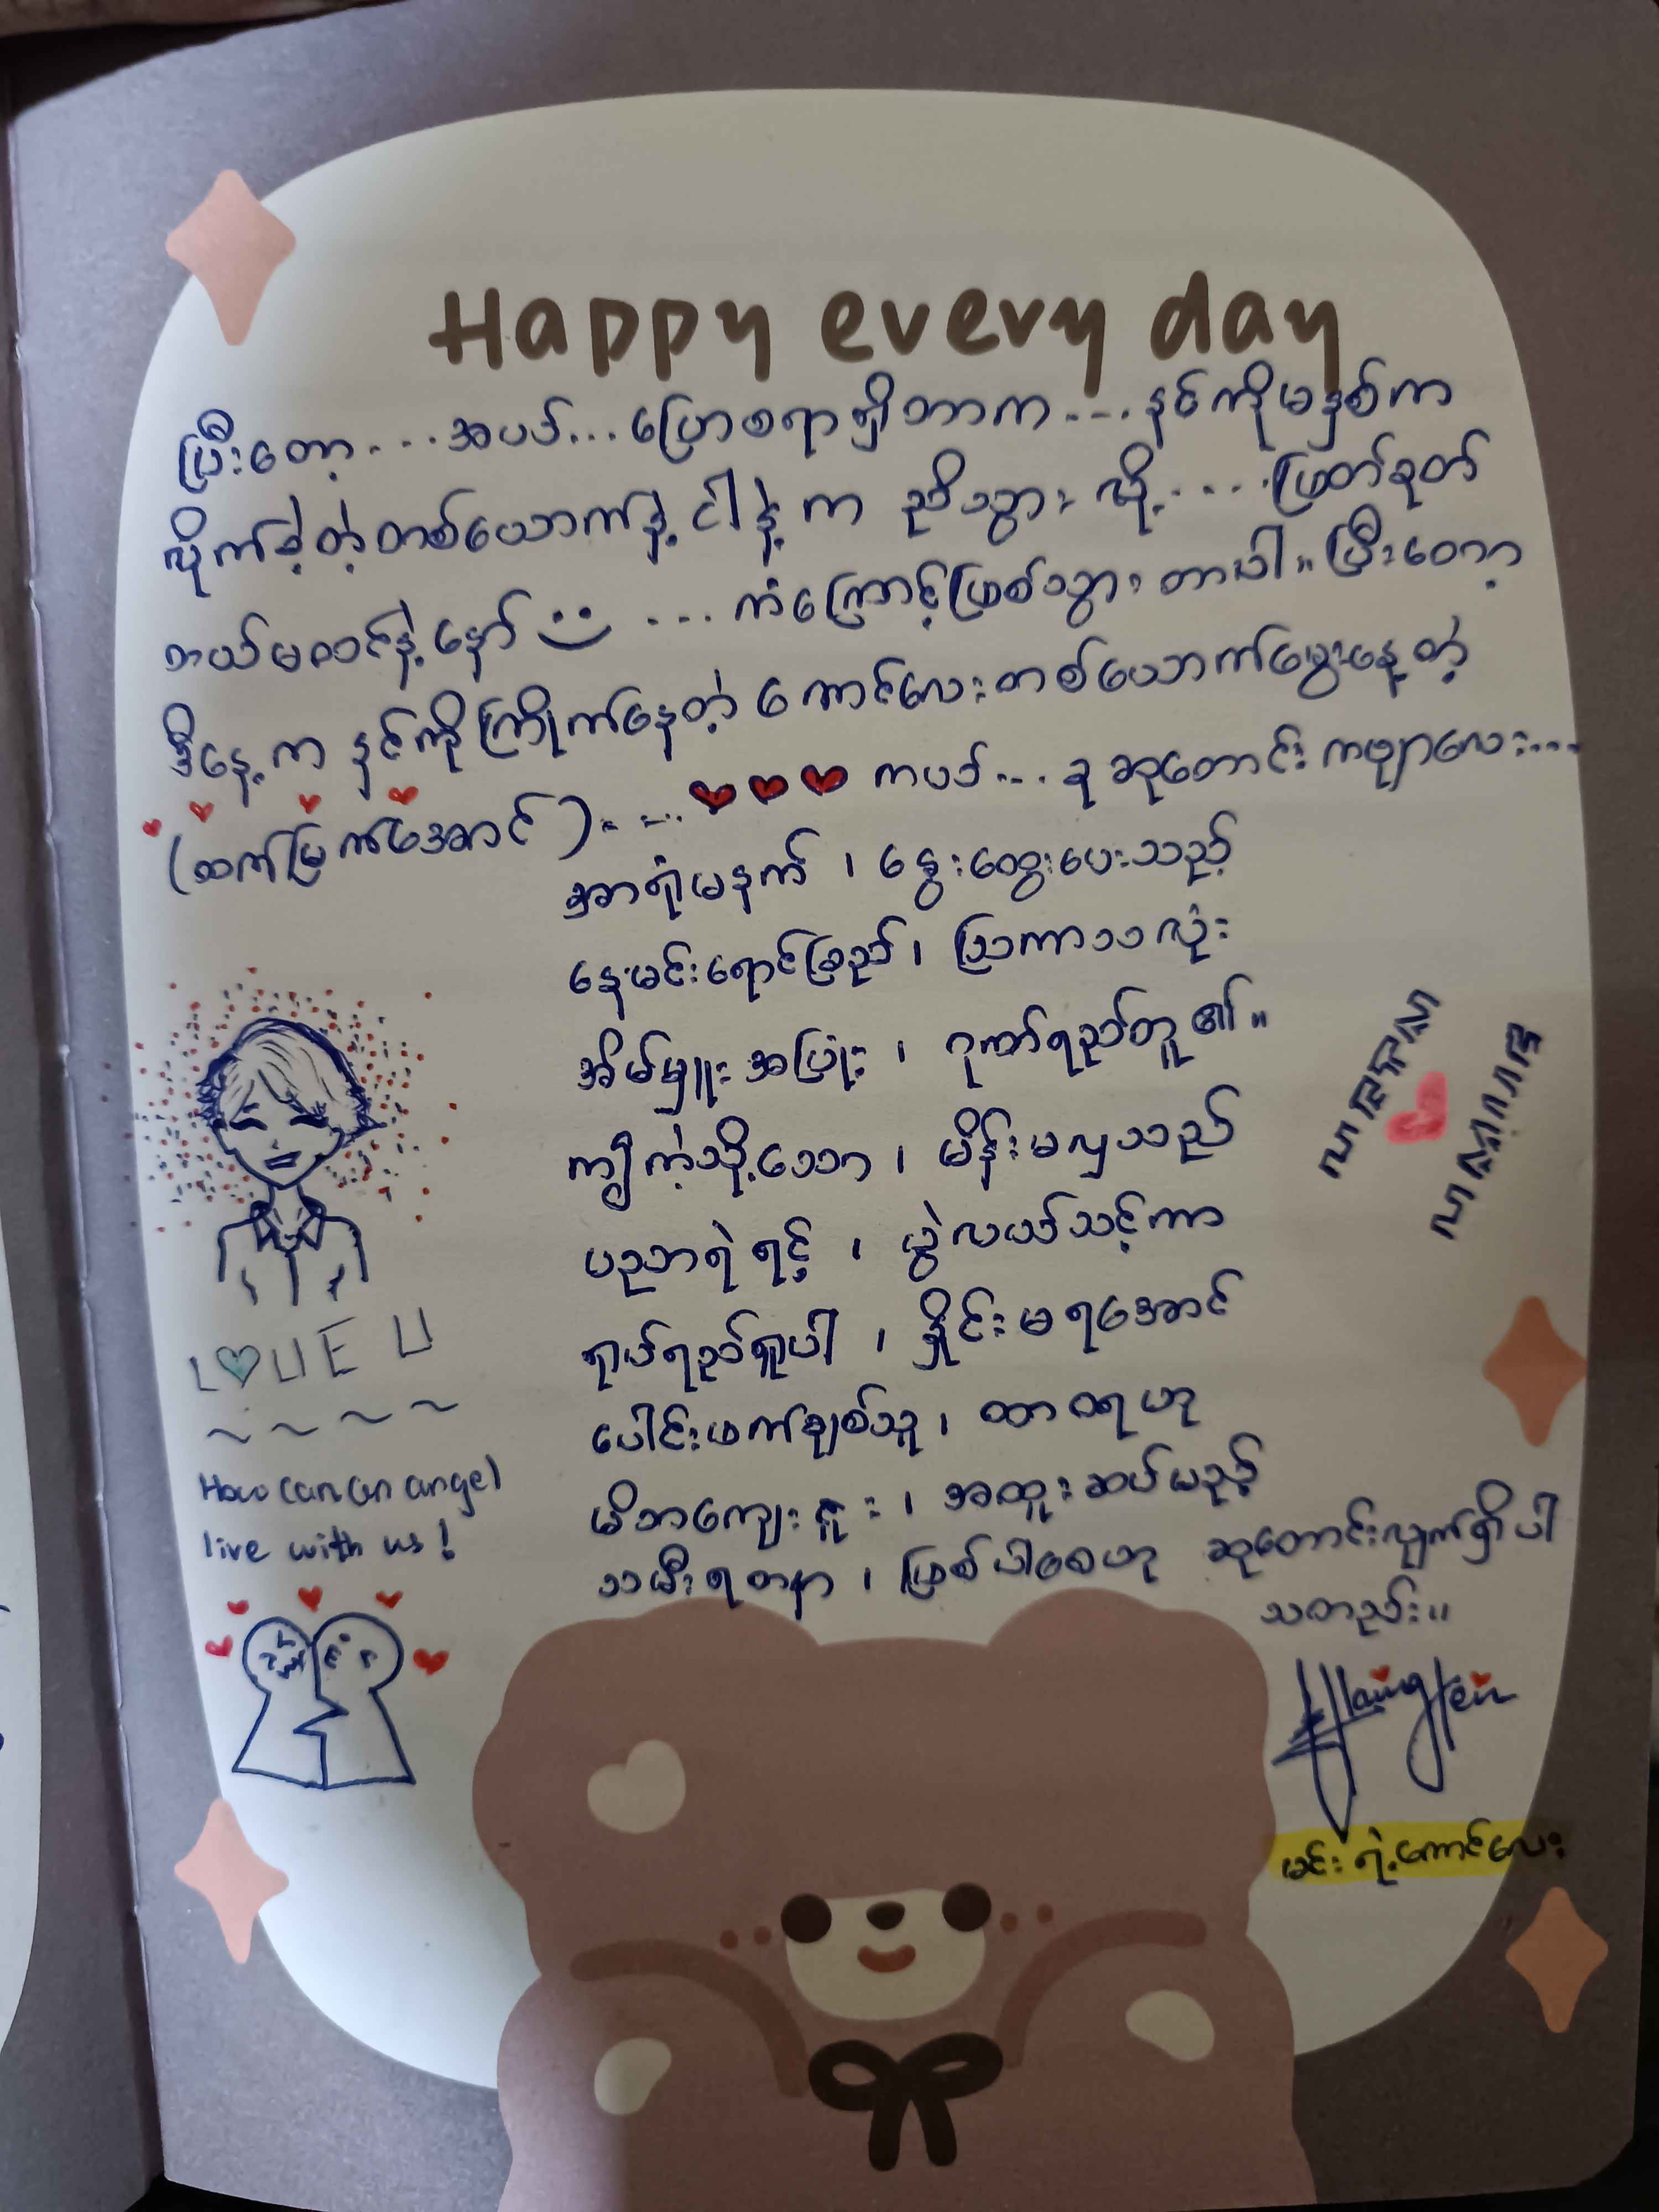 Happy every day
ပြီးတော့...အပယ်...ပြောစရာရှိတာက...နင်ကိုမနှစ်က
လိုက်ခဲ့တဲ့တစ်ယောက်နဲ့ ငါနဲ့က ညီသွားလို့....ဖြတ်ခုတ်
တယ်မထင်နဲ့နော် ...ကံကြောင့်ဖြစ်သွားတာပါ။ ပြီးတော့
ဒီနေ့က နင်ကိုကြိုက်နေတဲ့ကောင်လေးတစ်ယောက်မွေးနေ့တဲ့
(ထက်မြက်အောင်)..... ကပယ်...ခုဆုတောင်းကဗျာလေး...
အာရုံမနက်၊ နွေးထွေးပေးသည့်
နေမင်းရောင်ခြည်၊ ဩကာသလုံး
အိမ်မှူးအပြုံး၊ ဂုဏ်ရည်တူ၏။
ကျိုကဲ့သို့သော၊ မိန်းမလှသည်
ပညာရဲရင့်၊ ပွဲလယ်သင့်ကာ
ရုပ်ရည်ရှုပါ၊ နှိုင်းမရအောင်
ပေါင်းဖက်ချစ်သူ၊ ထာဝရဟု
မိဘကျေးဇူး၊ အထူးဆပ်မည့်
သမီးရတနာ၊ ဖြစ်ပါစေဟု ဆုတောင်းလျက်ရှိပါ
သတည်း။
LOVE U
How can an angel
live with us!
မင်းရဲ့ကောင်လေး